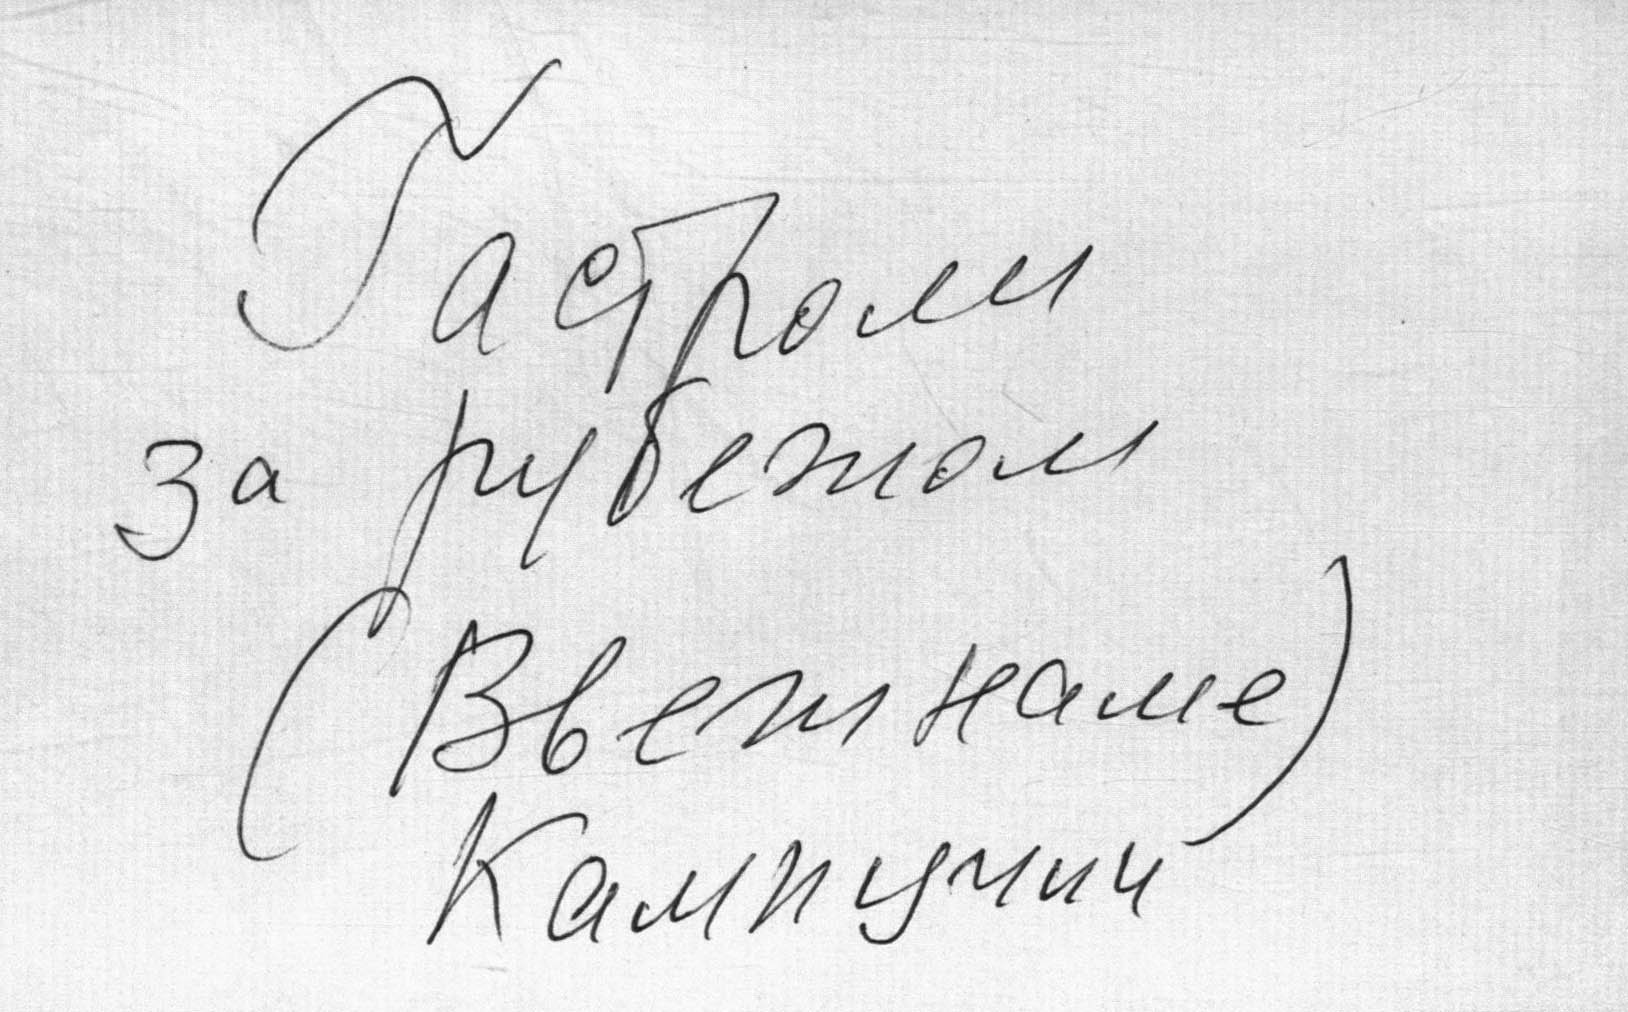 Гастроли
за рубежом
(Вьетнаме)
Кампучии